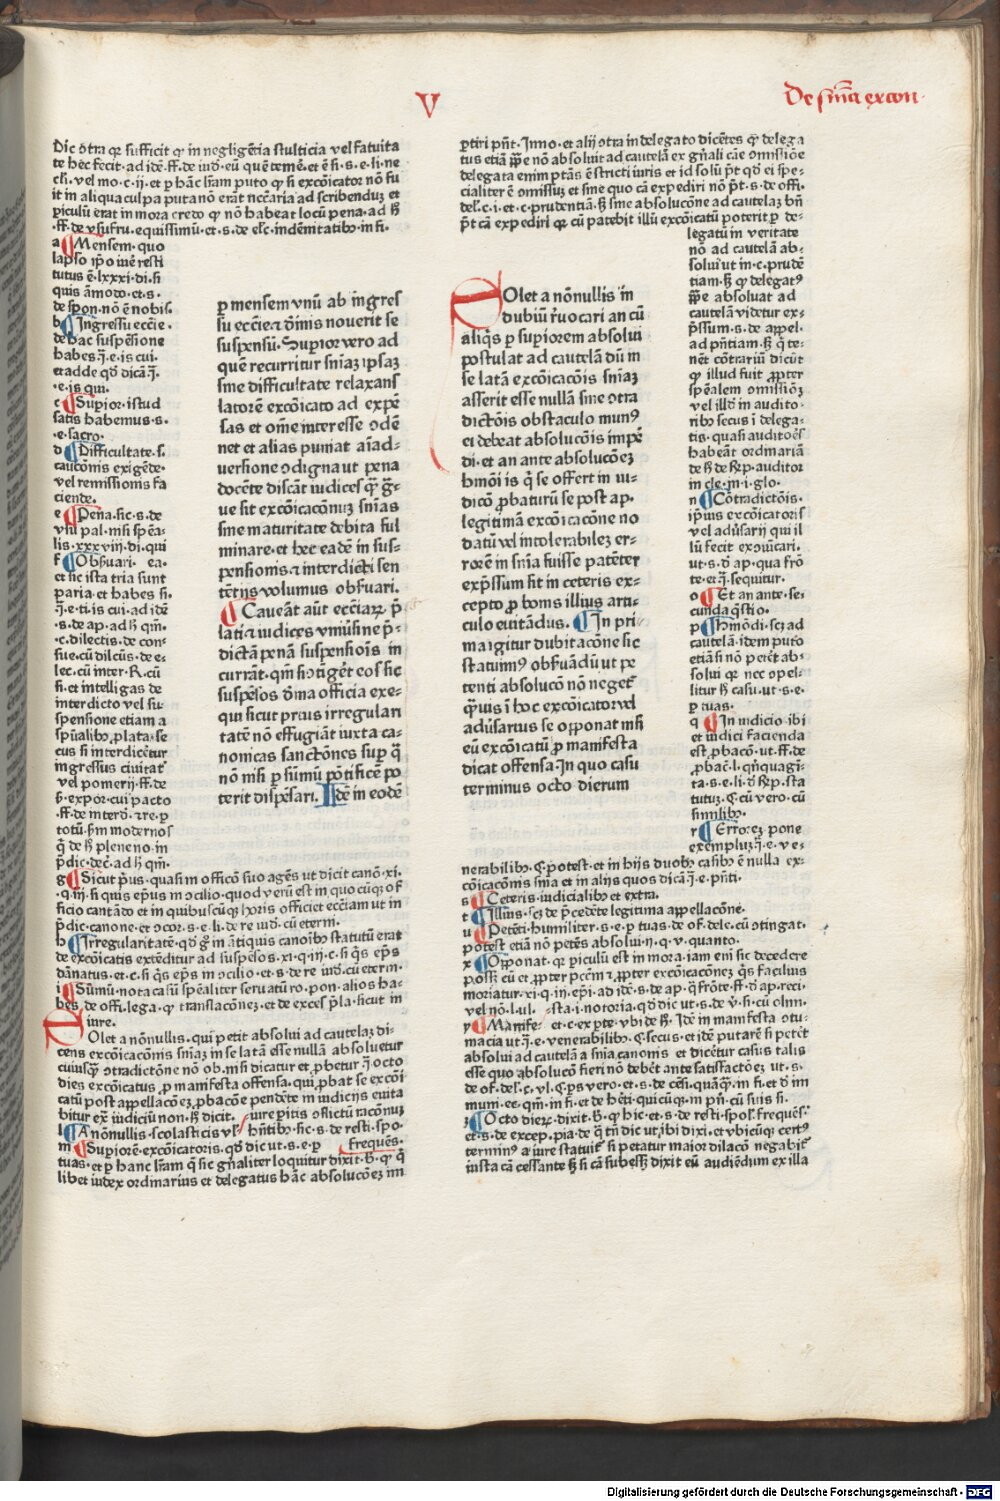 V
De sñia excon·
Dic ↄtra qꝛ sufficit ꝙ in negligẽtia stulticia vel fatuita
te hec fecit· ad idẽ·ff·de iud̾·eũ quẽ temẽ·et ẽ ħ·s·e·li·ne
cli·vel mo·c·ij·et ꝑ hãc lr̃am puto ꝙ si excõicator nõ fu
it in aliqua culpa puta nõ erat ncc̃aria ad scribenduꝫ et
ꝑiculũ erat in mora credo ꝙ nõ habeat locũ pena·ad ħ
·ff·de vsufru·equissimũ·et·s·de elc̃·indẽnitatibꝰ·in fi·
a Mensem·quo
lapso ip̃o iure resti
tutus ẽ·lxxxi·di·si
quis ãmodo·et·s·
de spon·nõ ẽ nobis·
b Ingressu eccĩe·
de hac suspẽsione
habes ĩ·e·is cui·
et adde qđ dicã ĩ·
·e·is qui·
c Supior·istud
satis habemus·s·
·e·sacro·
d Difficultate·s·
caucõnis exigẽde·
vel remissionis fa
ciende·
e Pena·sic·s·de
viu pal·nisi spẽa-
lis·xxxviij·di·qui
f Obs̾uari· ea·
et sic ista tria sunt
paria·et habes si·
ĩ·e·ti·is cui·ad idẽ
·s·de ap·ad ħ qm̃·
·c·dilectis·de con-
sue·cũ dilcũs·de e-
lec·cũ inter·R·cũ
si·et intelligas de
interdicto vel su-
spensione etiam a
sp̃ualibꝰ ꝓlata·se
cus si interdicẽtur
ingressus ciuitat᷒
vel pomerij·ff·de
v̾·ex por·cui pacto
·ff·de interd̾·⁊ re·ꝑ
totũ·ħm modernos
q̃ de ħ pleneno·in
p̃dic·dec̃·ad ħ qm̃·
ꝑ mensem vnũ ab ingres
su eccĩe ⁊ d̃inis nouerit se
suspensũ·Supior vero ad
quẽ recurritur sn̾iaꝫ ipsaꝫ
sine difficultate relaxans
latorẽ excõicato ad expẽ
sas et om̃e interesse ↄdẽ
net et alias puniat aĩad-
uersione ↄdigna ut pena
docẽte discãt iudices q̃ g̃-
ue sit excõicacõnuꝫ sn̾ias
sine maturitate debita ful
minare·et hec eadẽ in sus-
pensionis ⁊ interdicti sen
tẽtijs volumus obs̾uari.
Caueãt aũt ecciaꝝ p̃
lati ⁊ iudices vniũsi ne p̃-
dictã penã suspensiõis in
currãt·qm̃ si ↄtig̾et eos sic
suspẽsos d̃ina officia exe-
qui sicut prius irregulari
tatẽ nõ effugiãt iuxta ca-
nonicas sanctõnes sup q̃
nõ nisi ꝑ sũmũ põtificẽ po
terit dispẽsari. Idẽ in eodẽ
g Sicut p̾us·quasi in officõ suo agẽs ut dicit canõ·xi·
·q·iij·si quis ep̃us in ↄcilio·quod verũ est in quo cũqꝫ of
ficio cantãdo et in quibuscũqꝫ horis officiet ecciam ut in
p̃dic·canone·et ↄcor·s·e·li·de re iud̾·cũ eterni·
h Irregularitatẽ·qđ g̾ in ãtiquis canoĩbꝰ statutũ erat
de excõicatis extẽditur ad suspẽsos·xi·q·iij·c·si q̃s ep̃s
dãnatus·et·c·si q̃s ep̃s in ↄcilio·et·s·de re iud̾·cũ eterni·
i Sũmũ·nota casũ spẽaliter seruatũ ro·pon·alios ha-
bes de offi·lega·ꝙ translacõneꝫ·et de exces p̃la·sicut in
iure.
Olet a nõnullis·qui petit absolui ad cautelaꝫ di-
cens excõicacõnis sn̾iaꝫ in se latã esse nullã absoluetur
cuiusqꝫ ↄtradictõne nõ ob·nisi dicatur et ꝓbetur ĩ octo
dies excõicatus ꝓ manifesta offensa·qui ꝓbat se excõi
catũ post appellacõeꝫ ꝓbacõne pendẽte in iudicijs euita
bitur ext̾ iudiciũ non·ħ dicit.
l A nõnullis·scolasticis vl᷒
iure pitis ↄflictũ racõnuꝫ
hñtibꝰ·sic·s·de resti·spo·
frequẽs·
m Supiorẽ·excõicatoris·qđ dic ut·s·e·ꝑ
tuas·et ꝑ hanc lr̃am q̃ sic gñaliter loquitur dixit·h̾·ꝙ q̃
libet iudex ordinarius et delegatus hãc absolucõeꝫ im
ꝑtiri pñt·Inno·et alij ↄtra in delegato dicẽtes ꝙ delega
tus etiã pp̃e nõ absoluit ad cautelã ex gñali cãe ↄmissiõe
delegata enim ptãs ẽ stricti iuris et id solũ p̃t qđ ei spe-
cialiter ẽ ↄmissuꝫ et sine quo cã expediri nõ p̃t·s·de offi·
del·c·i·et·c·prudentiã·ħ sine absolucõne ad cautelaꝫ bñ
p̃t cã expediri qꝛ cũ patebit illũ excõicatũ poterit ꝑ de-
legatũ in veritate
nõ ad cautelã ab-
solui ut in·c·prudẽ
tiam·ħ ꝙ delegatꝰ
pp̃e absoluat ad
cautelã videtur ex-
p̃ssum·s·de appel·
ad pñtiam·ħ q̃ te-
nẽt cõtrariũ dicũt
ꝙ illud fuit ꝓpter
spẽalem ↄmissiõꝫ
vel illđ in audito-
ribꝰ secus ĩ delega-
tis·quasi auditoẽs
habeãt ordinariã
de ħ de r̃sp·auditor
in cle·p̃·i·glo·
n Cõtradictõis·
ip̃ius excõicatoris
vel adũsarij qui il
lũ fecit exↄuicari·
ut·s·đ ap·qua frõ
te·et ĩ·sequitur·
o Et an ante·se-
cunda q̃stio·
p Hmõdi·scꝫ ad
cautelã·idem puto
etiãsi nõ petẽt ab-
solui qꝛ nec ↄpel-
litur ħ casu·ut·s·e·
ꝑ tuas·
q In iudicio·ibi
et iudici facienda
est ꝓbacõ·ut·ff·de
ꝓbac̃·l·qñquagĩ-
ta·s·e·li·đ r̃sp·sta
tutuꝫ·C·cũ vero·cũ
similibꝰ·
r Erroꝛeꝫ·pone
exempluꝫ ĩ·e·ve-
Solet a nõnullis in
dubiũ r̾uocari an cũ
aliq̃s ꝑ supiorem absolui
postulat ad cautelã dũ in
se latã excõicacõis sn̾iaꝫ
asserit esse nullã sine ↄtra
dictõis obstaculo munꝰ
ei debeat absolucõis impẽ
di·et an ante absolucõeꝫ
hmõi is q̃ se offert in iu-
dicõ ꝓbaturũ se post ap·
legitimã excõicacõne no
datũ vel intolerabileꝫ er-
roꝛẽ in sn̾ia fuisse patẽter
exp̃ssum sit in ceteris ex-
cepto ꝓ bonis illius arti-
culo euitãdus. In pri
ma igitur dubitacõne sic
statuimꝰ obs̾uãdũ ut pe
tenti absolucõ nõ neget᷒
q̃uis ĩ hoc excõicator vel
adũsarius se opponat nisi
eũ excõicatũ ꝓ manifesta
dicat offensa·In quo casu
terminus octo dierum
nerabilibꝰ·C·potest·et in hijs duobꝰ casibꝰ ẽ nulla ex-
cõicacõnis sn̾ia et in alijs quos dicã ĩ·e·pñti·
s Ceteris·iudicialibꝰ et extra·
t Illius·scꝫ de p̃cedẽte legitima appellacõne·
u Petẽti·humiliter·s·e·ꝑ tuas·de of·dele·cũ ↄtingat·
potest etiã nõ petẽs absolui·ij·q·v·quanto·
x Opponat·qꝛ ꝑiculũ est in mora·iam eni sic decedere
possꝫ cũ et ꝓpter pctm̃ ⁊ ꝓpter excõicacõneꝫ q̃s facilius
moriatur·xi·q·iij·ep̃i·ad idẽ·s·de ap·q̃ frõte·ff·đ ap·reci·
vel nõ·l·ul·
sta·i·notoria·qđ dic ut·s·de v̾·si·cũ olim·
y Manife-
et·c·ex ꝑte·vbi de ħ·Idẽ in manifesta ↄtu-
macia ut ĩ·e·venerabilibꝰ·C·secus·et idẽ putarẽ si petẽt
absolui ad cautelã a sn̾ia canonis et dicẽtur casus talis
esse quo absolucõ fieri nõ debẽt ante satisfactõeꝫ ut·s·
de of·del·c·vl·C·p̾s vero·et·s·de cẽsi·quãq̃·in fi·et đ im
muni·ec·qm̃·in fi·et de hẽti·quicũqꝫ·in pñ·cũ suis si·
z Octo dieꝝ·dixit·h̾·ꝙ hic·et·s·de resti·spol·frequẽs·
et·s·de excep·pia·de q̃ tñ dic ut·ibi dixi·et vbicũqꝫ certꝰ
terminꝰ a iure statuit᷒ si petatur maior dilacõ negabit᷒
iusta cã cessante ħ si cã subessꝫ dixit eũ audiẽdum ex illa
Digitalisierung gefördert durch die Deutsche Forschungsgemeinschaft - DFG